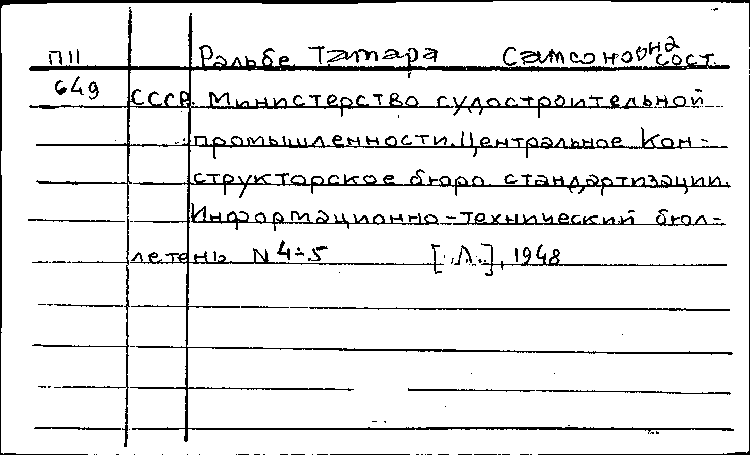 П11 Ральбе Тамара Самсоновна сост.
649 СССР. Министерство судостроительной
промышленности. Центральное Кон-
структорское бюро стандартизации.
Информационно-технический бюл-
летень N 4-5 [Л.], 1948